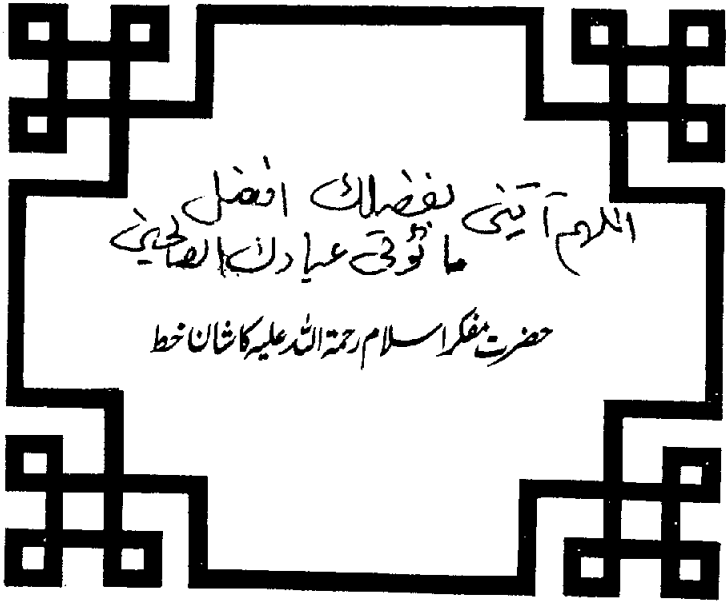 اللهم آتيني بفضلك افضل
ما تؤتي عبادك الصالحين
حضرت مفکر اسلام رحمۃ اللہ علیہ کا شان خط